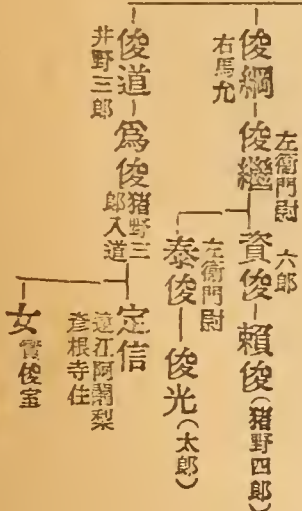 俊綱
右馬允
俊繼
左衛門尉
資俊
六郎
賴俊(猪野四郎)
泰俊
左衛門尉
俊光(太郎)
俊道
井野三郎
爲俊
猪野三
郎入道
定信
遠江阿闍梨
彥根寺住
女
實俊室